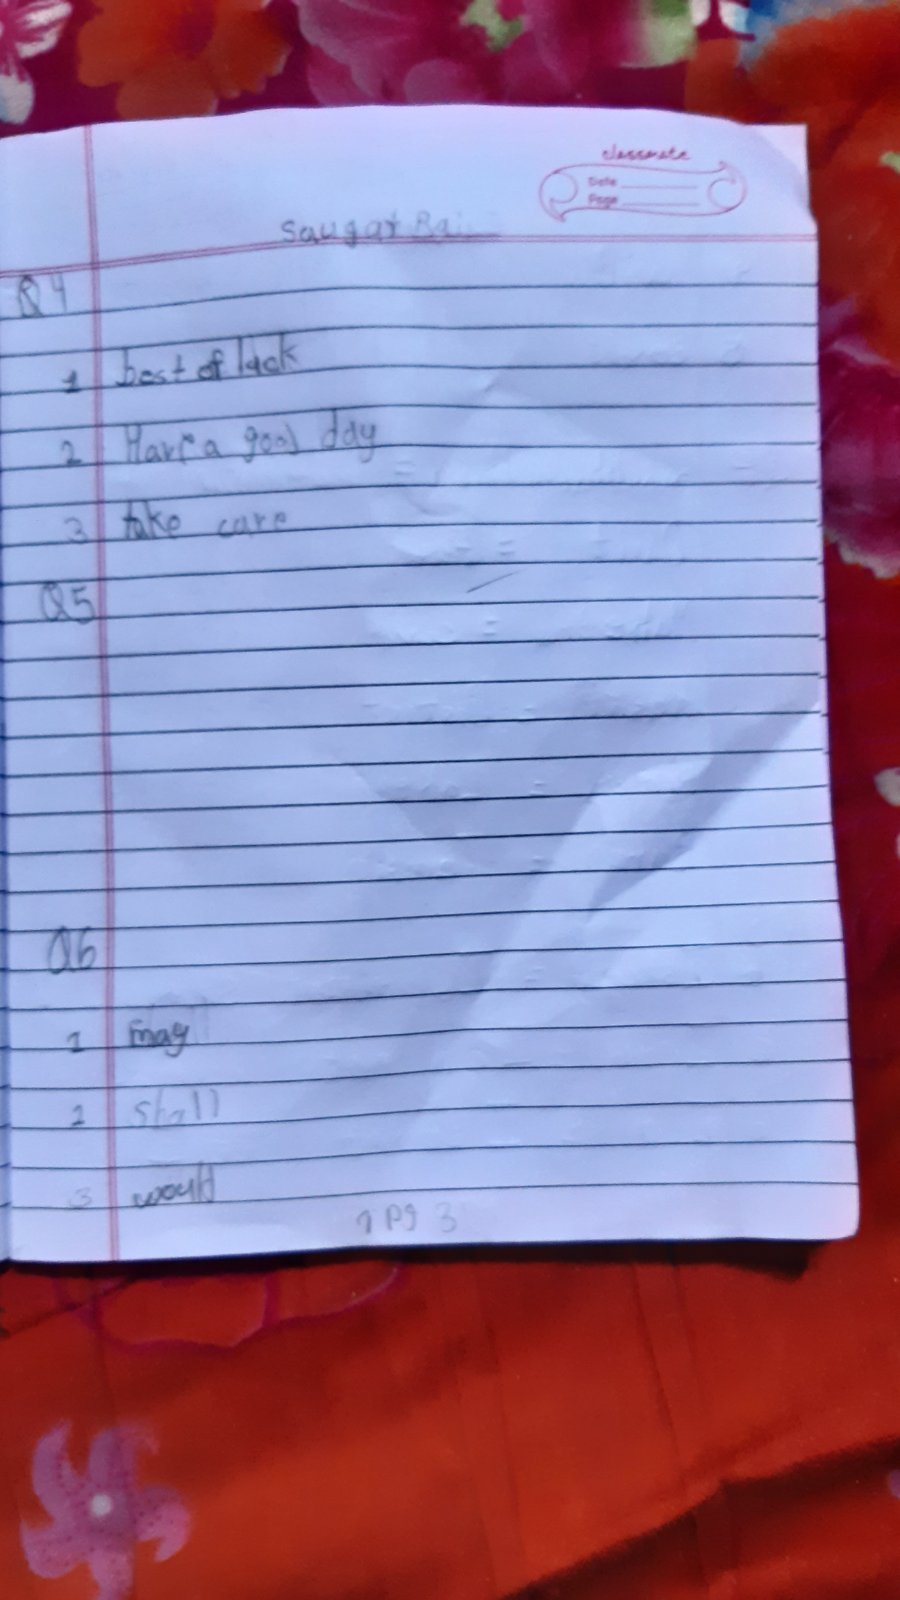 classmate
Date
Page
Saugat Rai
Q4
1 best of lack
2 Have a good day
3 take care
Q5
Q6
1 may
2 shall
3 would
pg 3